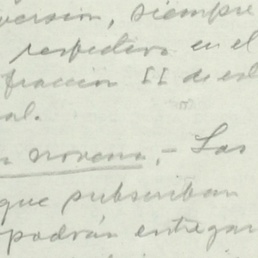 versión, siempre
respectivo en el
fracción II de es
al.
novena,- Las
que subscriban
podrán entregar